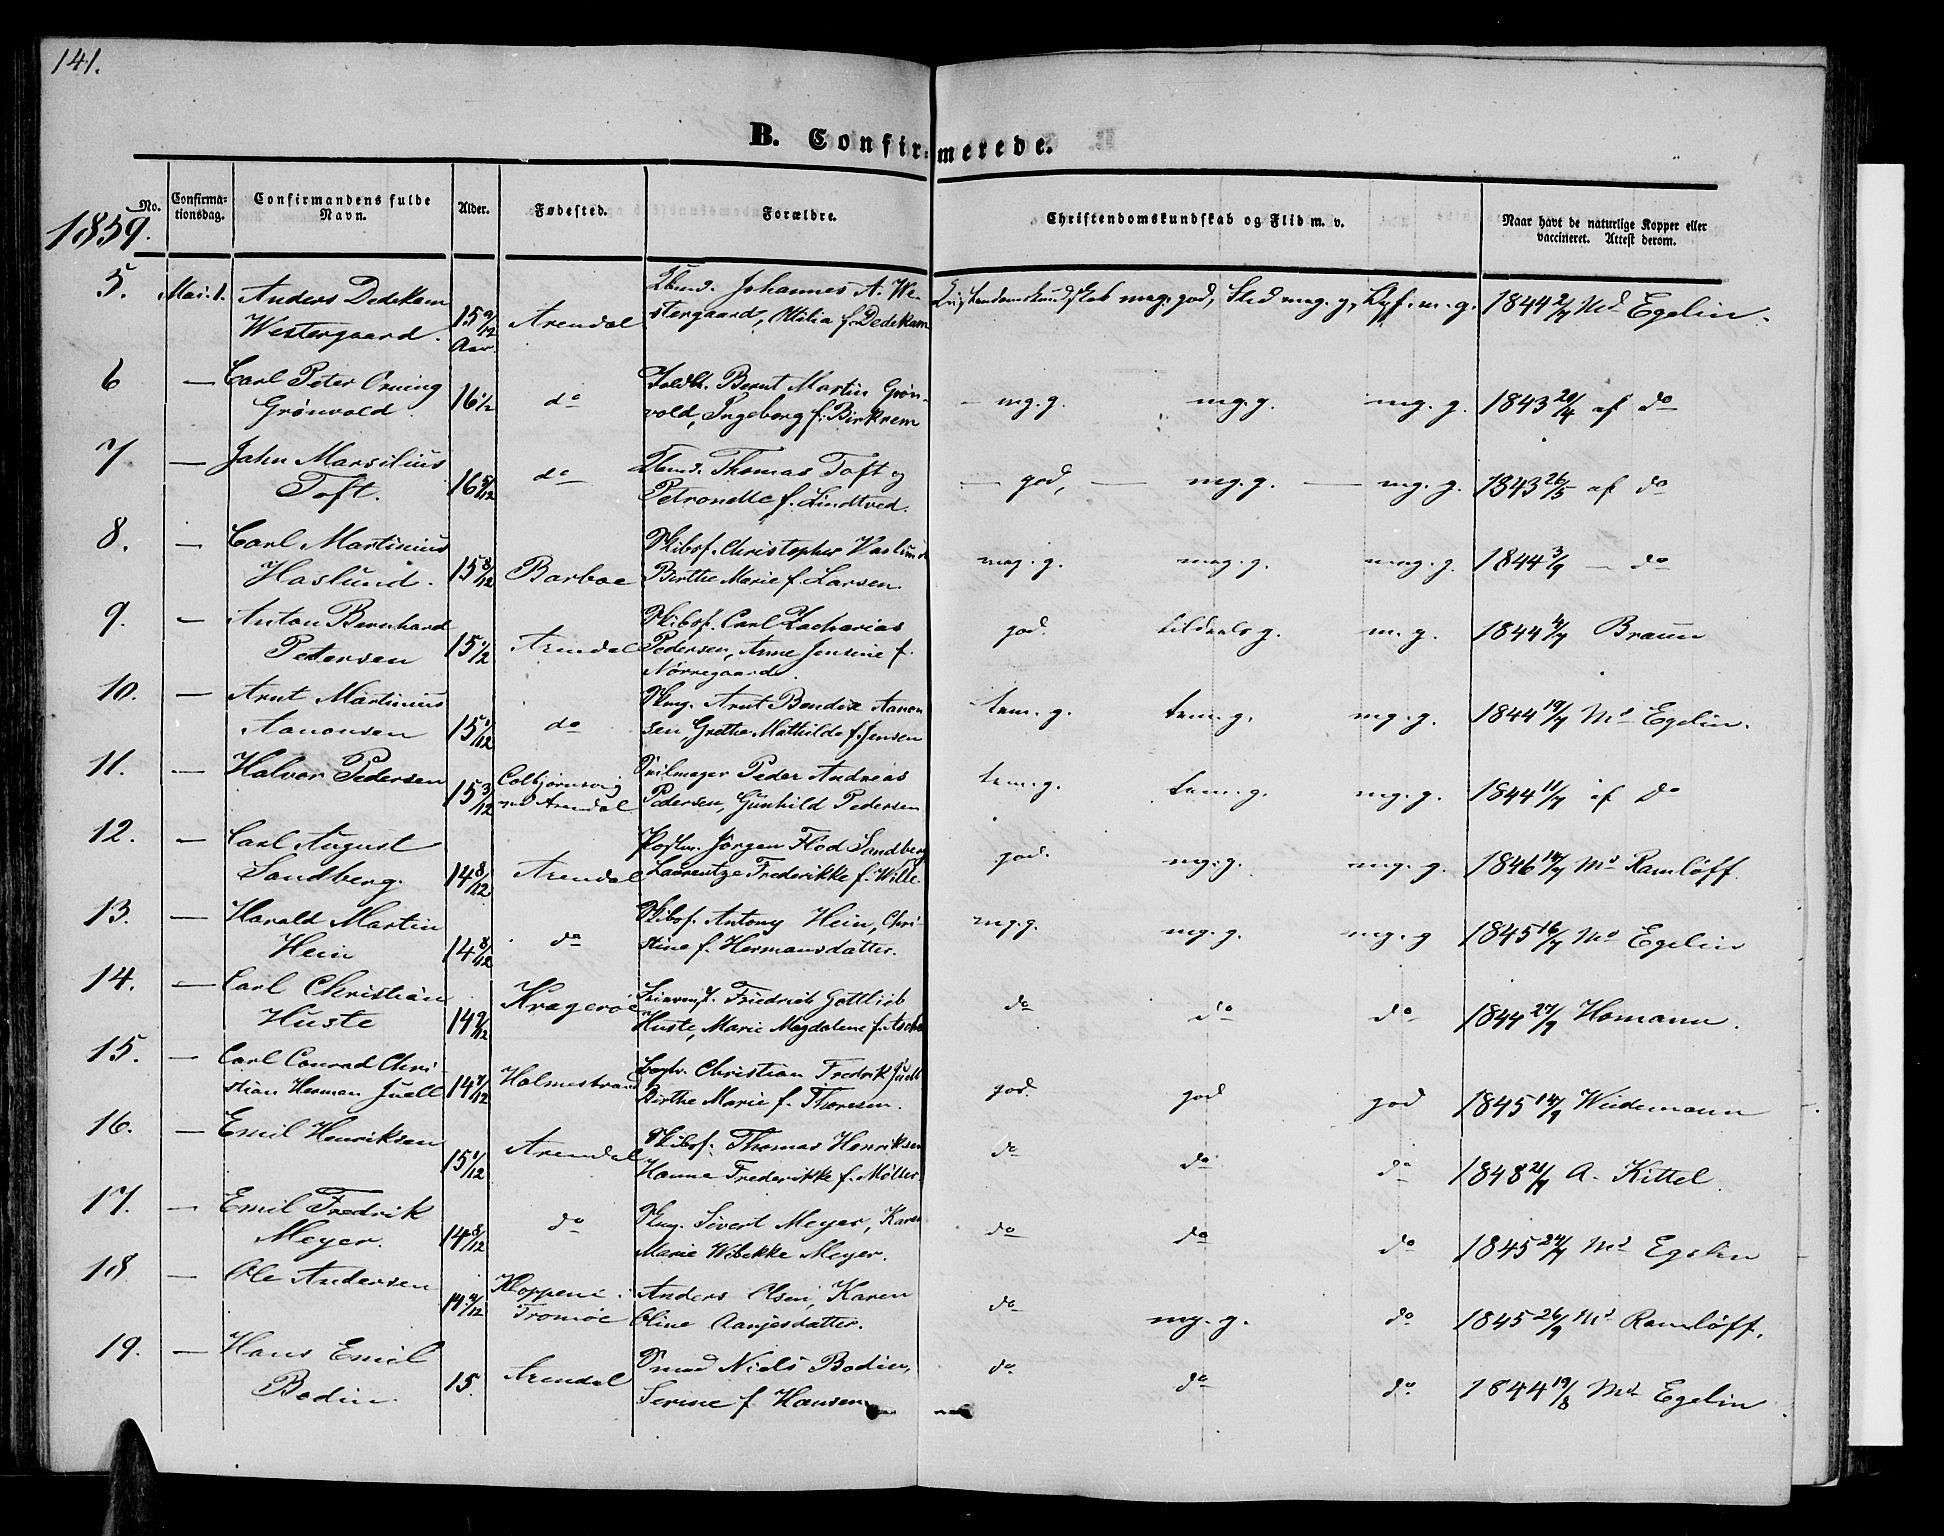 141.
B. Confirmerede.
1859.
No.
Confirmationsdag.
Confirmandens fulde Navn.
Alder.
Fødested.
Forældre.
Christendomskundskab og Flid m. v.
Naar havt de naturlige Kopper eller vaccineret. Attest derom.
5. Mai. 1. Anders Dedekam 15 9/12 Arendal Johannes A. We- mag. god, Flid mag. g, m. g. 1844 2/7 Md Egelin.
Westergaard. Aar. stergaard, Otilia f. Dedekam
6 — Carl Peter Orning 16 1/2 do Bernt Martin Grøn- mg. g. mg. g. mg. g. 1843 20/4 af do
Grønvold. vold, Ingeborg f. Birkrem
7 — Jahn Marsilius 16 5/12 do Thomas Toft og — god, — mg. g. — mg. g. 1843 26/5 af do
Toft. Petronelle f. Lindtved.
8. — Carl Martinius 15 8/12 Barboe Skibsf. Christopher Haslund mag. g. mag. g. mag. g. 1844 3/9 — do
Haslund. Birthe Marie f. Larsen.
9. — Anton Bernhard 15 1/2 Arendal Skibsf. Carl Zacharias god. tildeels g. m. g. 1844 4/7 Braun
Petersen Pedersen, Anne Jensine f.
Nørregaard.
10. — Arnt Martinius 15 1/12 do Arnt Bendix Aanon- tem. g. tem. g. mg. g. 1844 19/7 Md Egelin.
Aanonsen sen, Grethe Mathilde f. Jensen
11. — Halvor Pedersen 15 3/12 Colbjørnsvig Seilmager Peder Andreas tem. g. tem. g. mg. g. 1844 11/7 af do
ved Arendal Pedersen, Gunhild Pedersen
12. — Carl August 14 8/12 Arendal Jørgen Flod Sandberg god. mg. g. mg. g. 1846 14/7 Md Ramløff.
Sandberg. Laurentze Frederikke f. Wille
13. — Harald Martin 14 8/12 do Skibsf. Antony Hein, Chri- mg. g. mg. g. mg. g 1845 16/7 Md Egelin
Hein stine f. Hermansdatter.
14. — Carl Christian 14 9/12 Kragerøe Friedrich Gottlieb do do do 1844 27/9 Homann.
Huste Huste, Marie Magdalene f.
15. — Carl Conrad Chri- 14 7/12 Holmestrand Christian Fredrik Juell god. god god 1845 14/9 Weidemann
stian Herman Juell Birthe Marie f. Thoresen.
16. — Emil Henriksen 15 1/12 Arendal Skibsf. Thomas Henriksen do do do 1848 21/7 A. Kittel.
Hanne Frederikke f. Møller
17. — Emil Fredrik 14 8/12 do Sivert Meyer, Karen do do do 1845 24/7 Md Egelin
Meyer. Marie Wibekke Meyer.
18 — Ole Andersen 14 4/12 Kloppene i Anders Olsen, Karen do mg. g. do 1845 26/9 Md Ramløff.
Tromøe Oline Aanjesdatter.
19. — Hans Emil 15. Arendal Smed Niels Bodin, do do do 1844 19/8 Md Egelin
Bodin. Serine f. Hansen